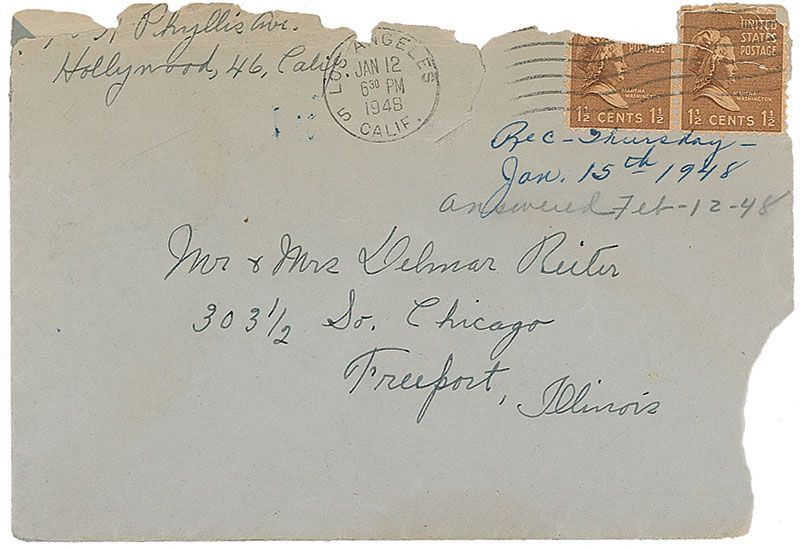 Phyllis Ave.
Hollywood, 46, Calif.
LOS ANGELES
JAN 12
6 30 PM
1948
5 CALIF.
POSTAGE
MARTHA
WASHINGTON
1½ CENTS 1½
UNITED
STATES
POSTAGE
MARTHA
WASHINGTON
1½ CENTS 1½
Rec - Thursday -
Jan. 15th 1948
answered Feb-12-48
Mr & Mrs Delmar Reiter
303 1/2 So. Chicago
Freeport, Illinois